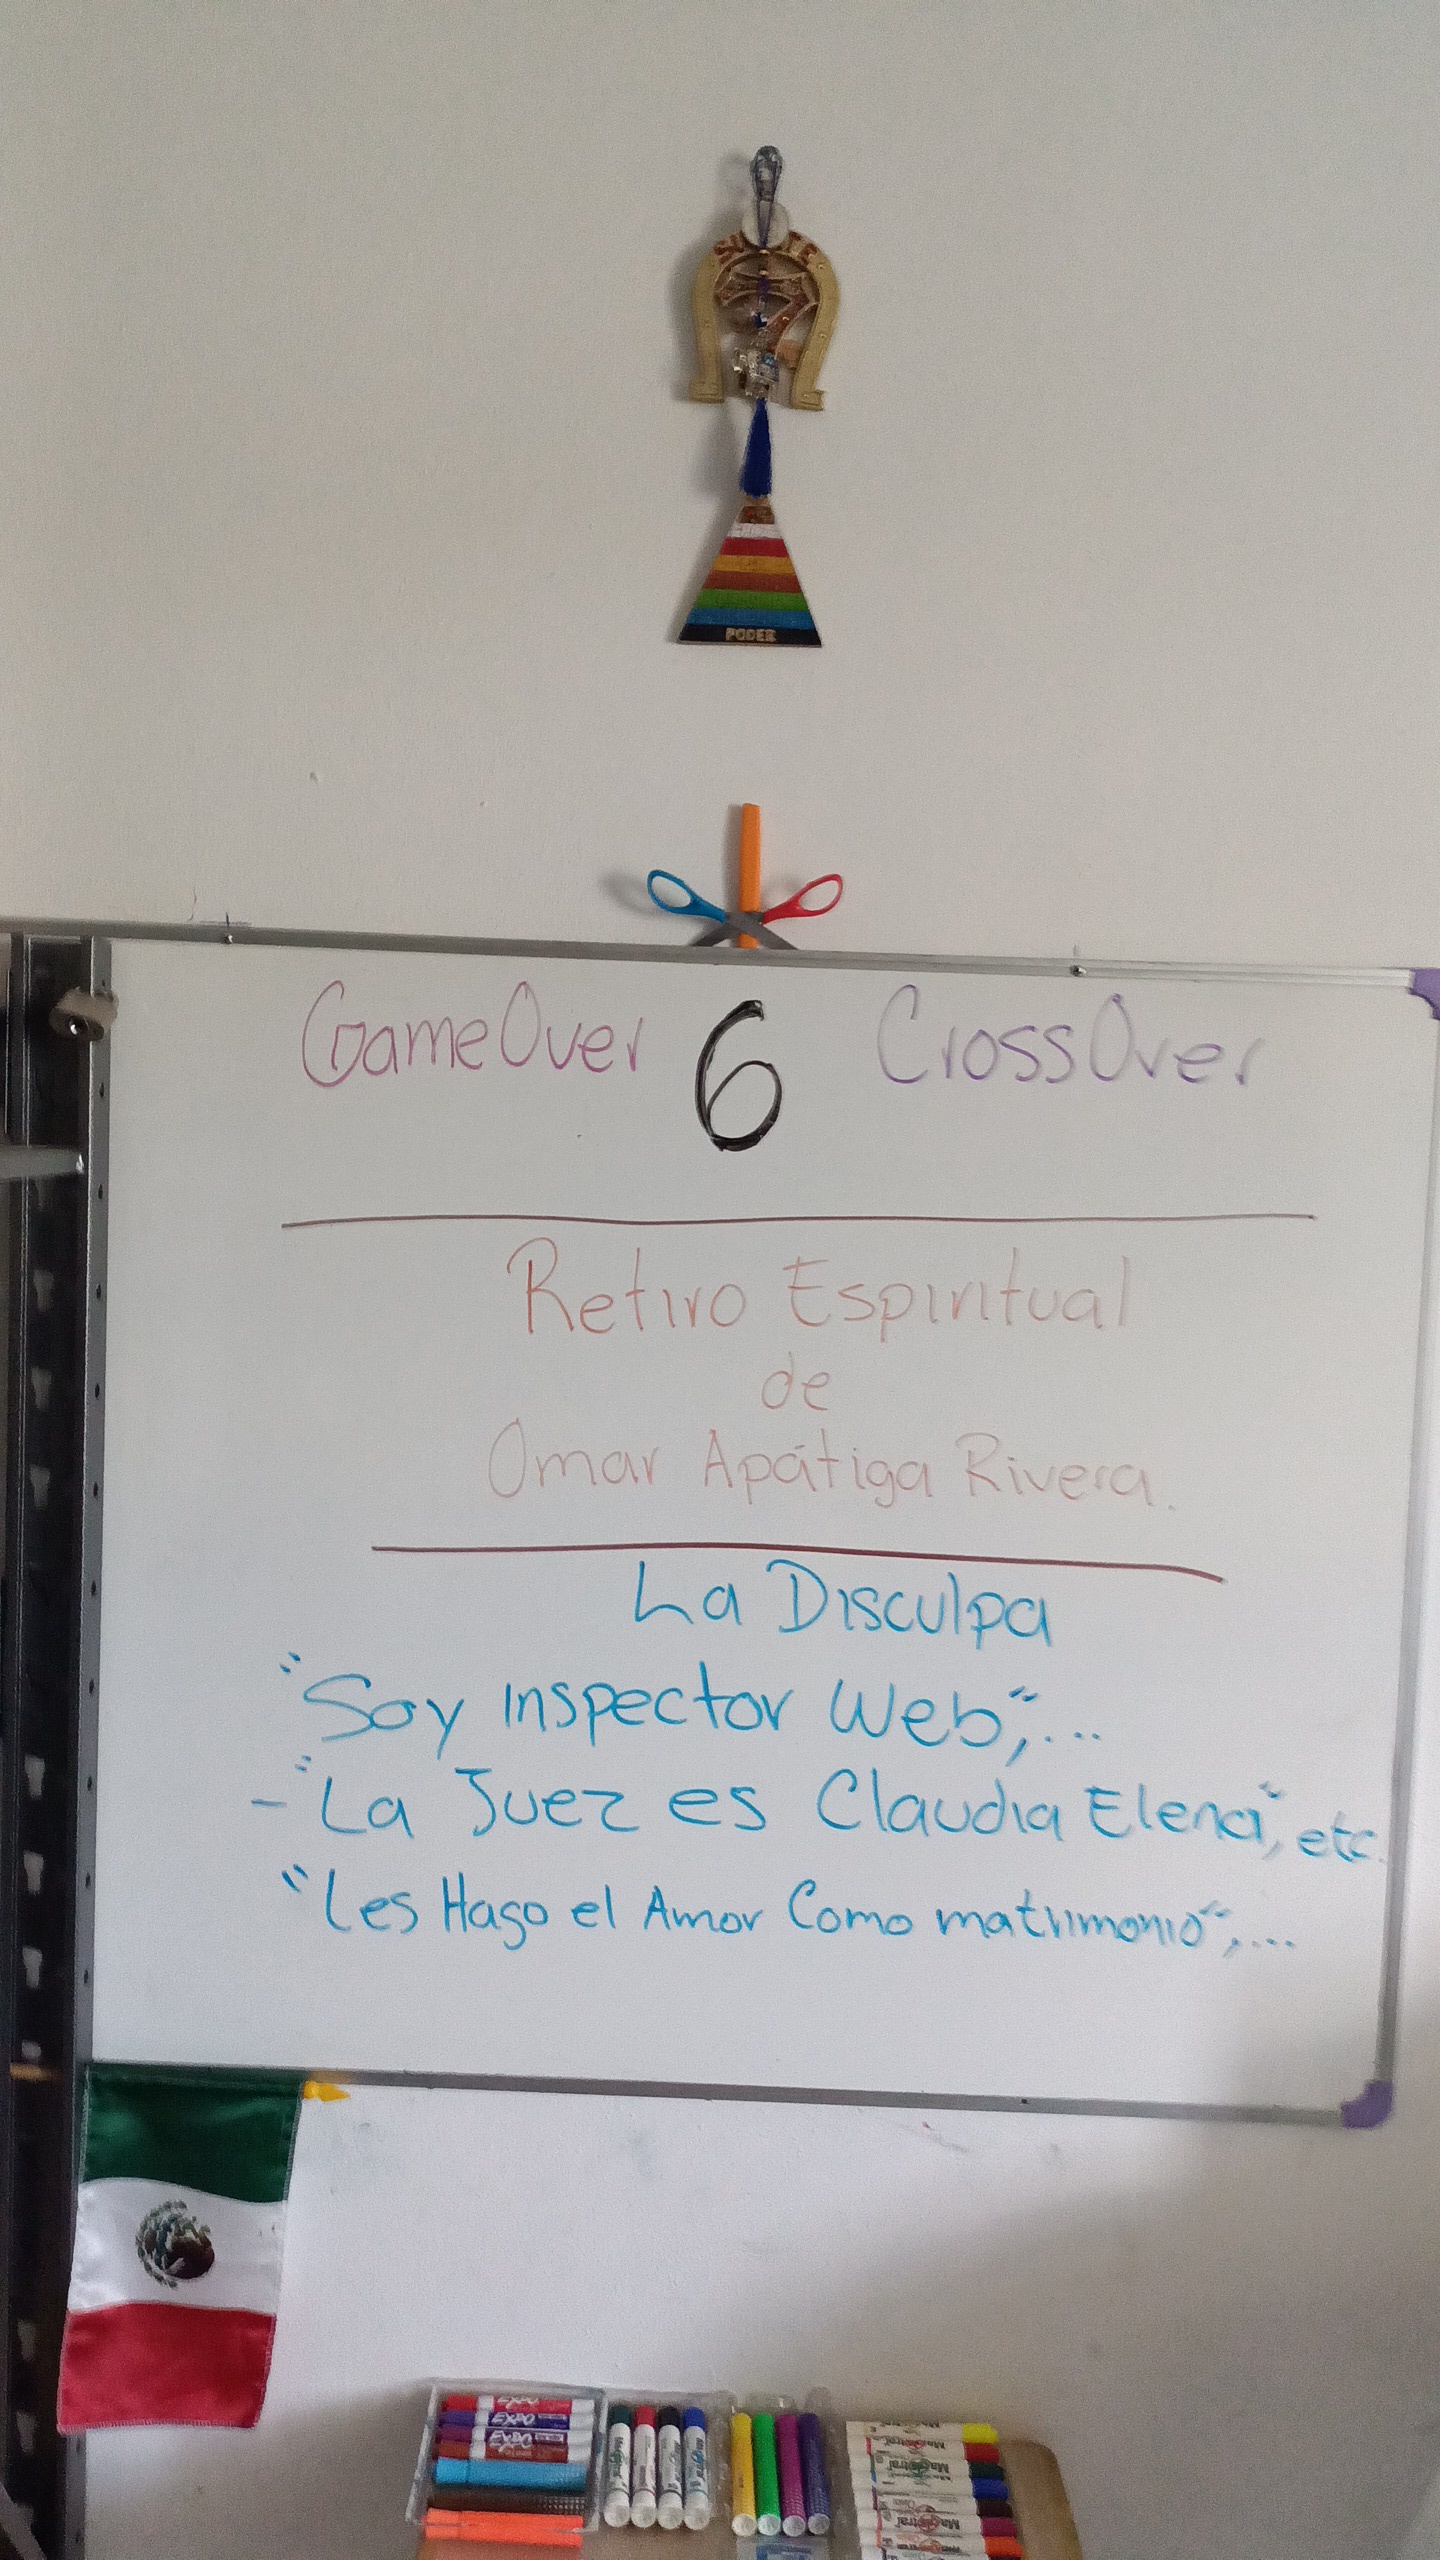 SUERTE
7
PODER
GameOver 6 CrossOver
Retiro Espiritual
de
Omar Apátiga Rivera.
La Disculpa
"Soy inspector Web",...
- "La Juez es Claudia Elena", etc.
"Les Hago el Amor Como matrimonio",...
EXPO
EXPO
EXPO
Magistral
Magistral